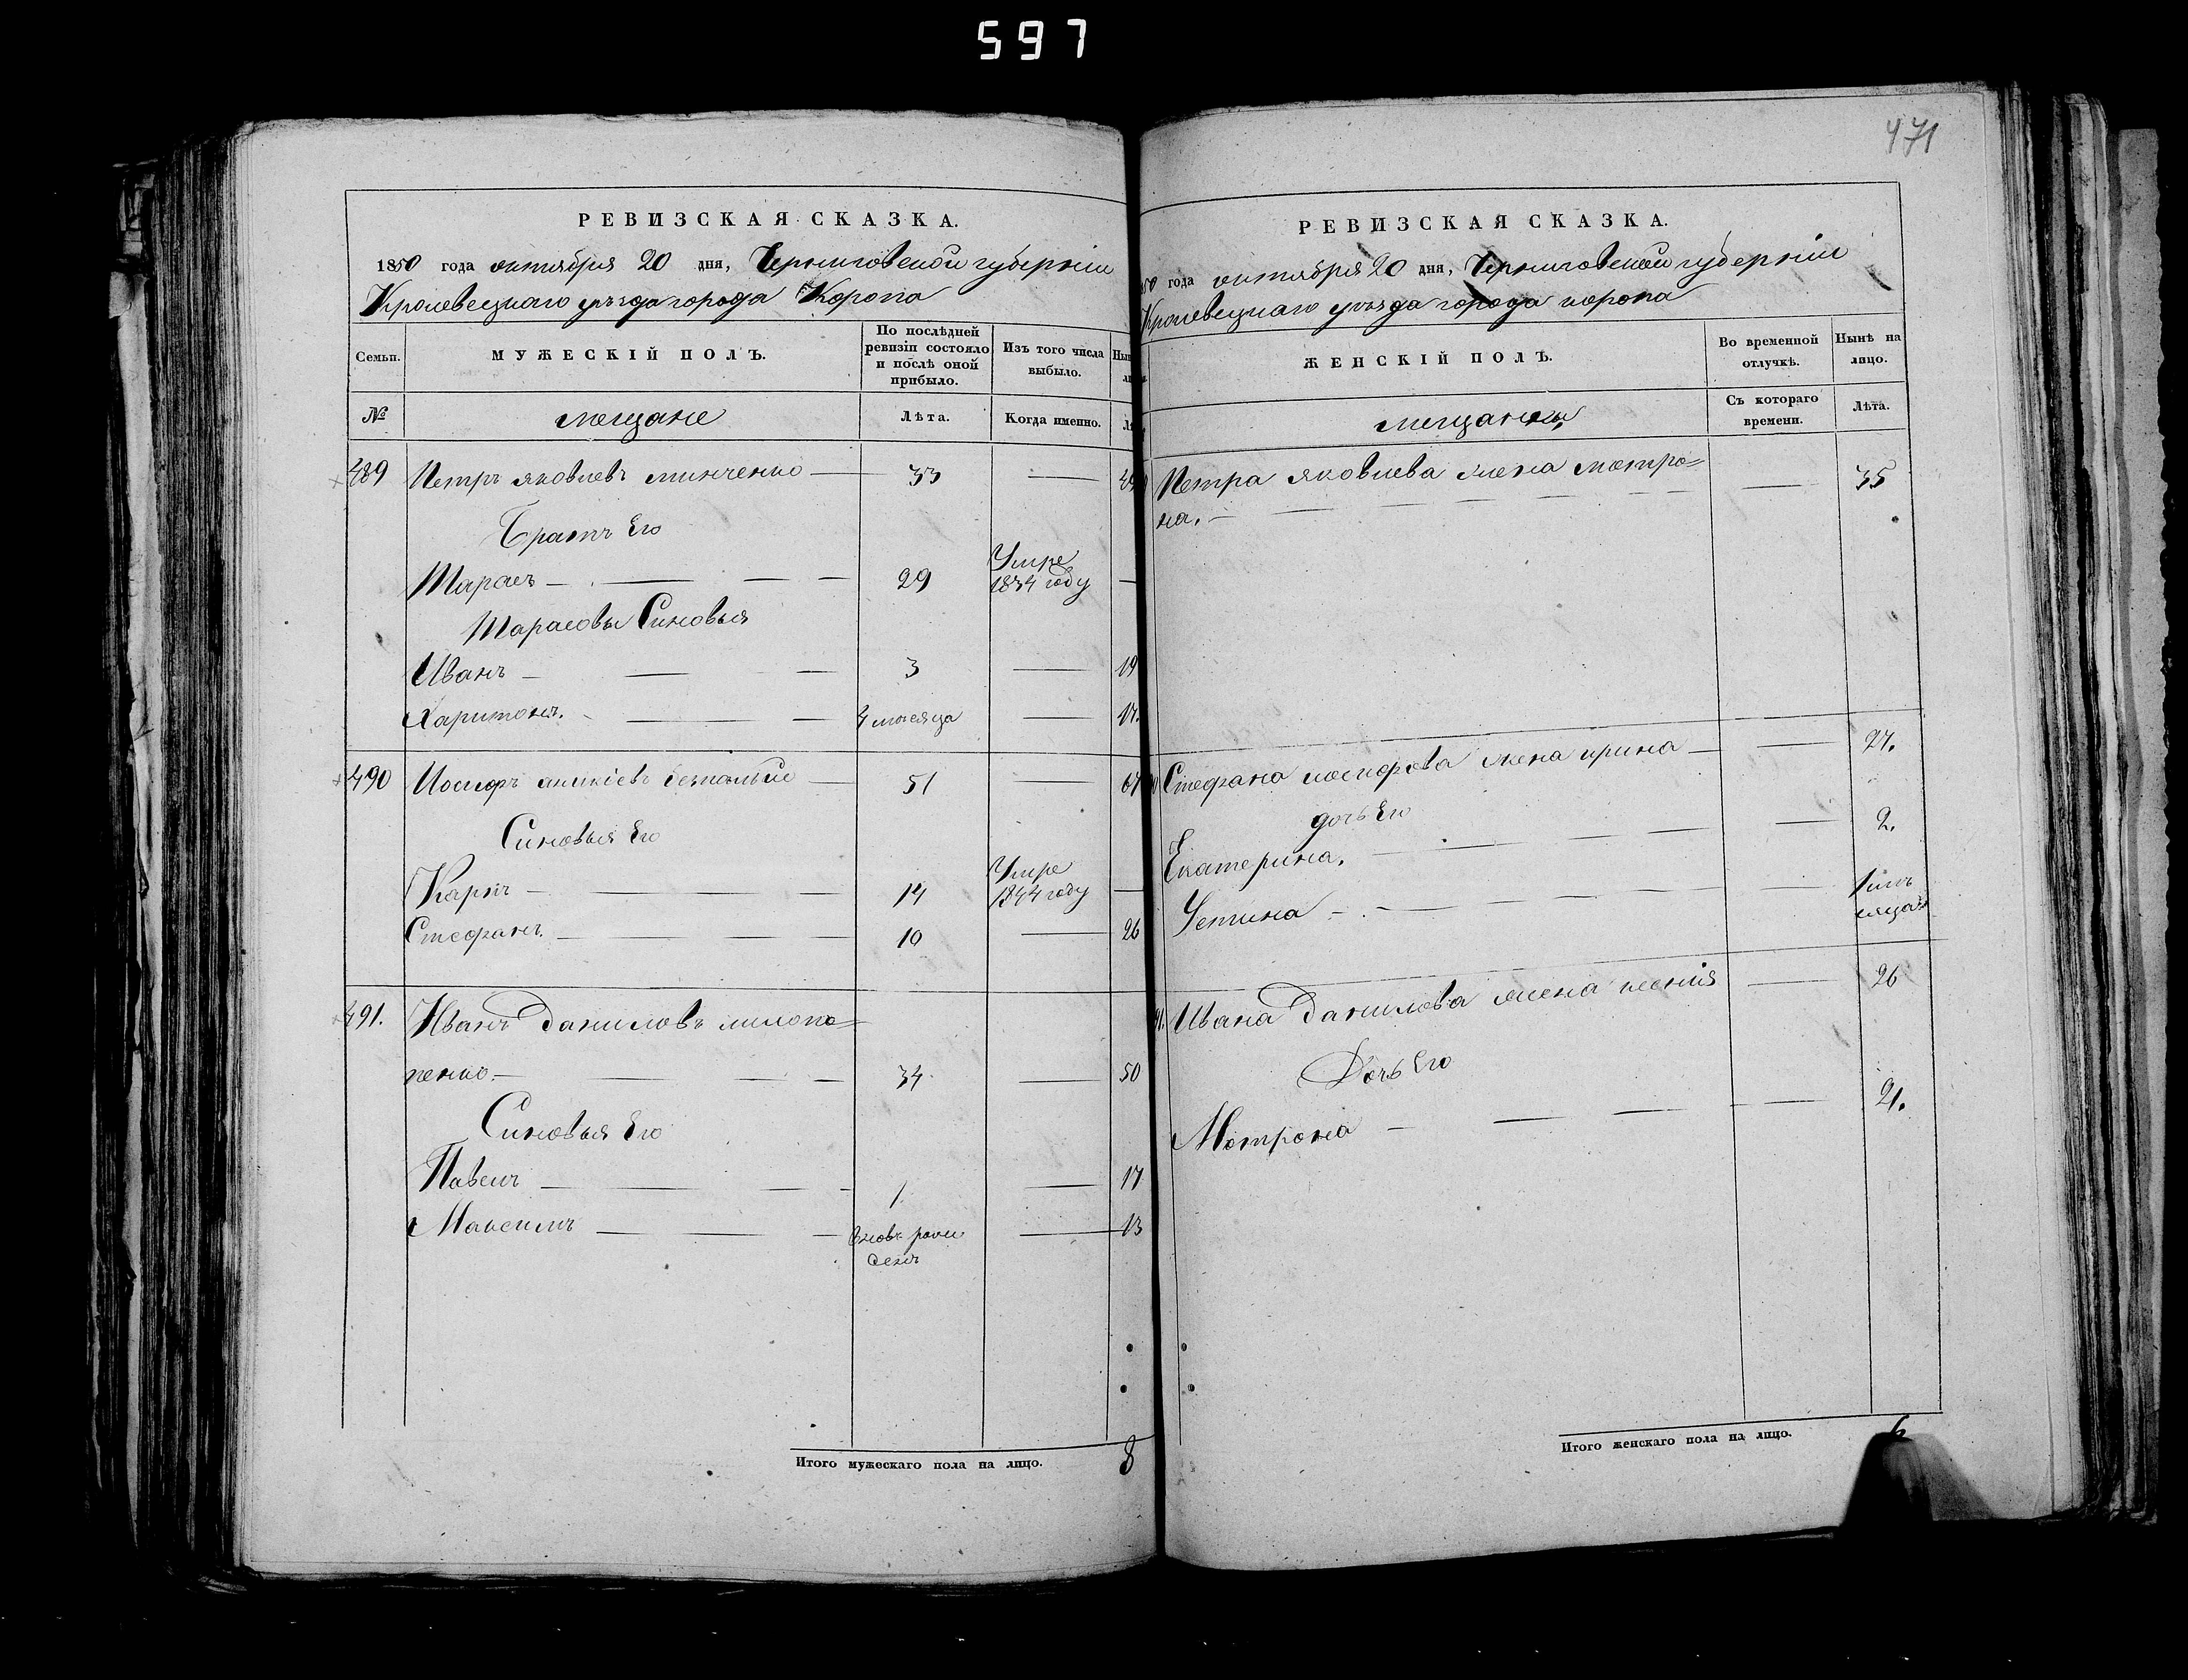 597
471
РЕВИЗСКАЯ СКАЗКА.
1850 года октября 20 дня, Черниговской губерніи
Кролевецкаго уѣзда города Коропа
Семьи.
МУЖЕСКІЙ ПОЛЪ.
По послѣдней ревизіи состояло и послѣ оной прибыло.
Изъ того числа выбыло.
№
мещане
Лѣта.
Когда именно.
489 Петръ яковлевъ минченко — 33 —
Братъ Его
Тарасъ — 29 Умре 1834 году —
Тарасовы Синовья
Иванъ — 3 — 19
Харитонъ. — 4 месяца — 17.
490 Иосифъ 51 — 67
Синовья Его
Карпъ — 14 Умре 1844 году —
Стефанъ. — 10 — 26
491. Иванъ даниловъ
пенко. — 34 — 50
Синовья Его
Павелъ — 1 — 17
Максимъ — вновь рожденъ — 13
Итого мужескаго пола на лицо. 8
РЕВИЗСКАЯ СКАЗКА.
года октября 20 дня, Черниговской губерніи
Кролевецкаго уѣзда города коропа
ЖЕНСКІЙ ПОЛЪ.
Во временной отлучкѣ.
Нынѣ на лицо.
мещанки
Съ котораго времени.
Лѣта.
Петра яковлева жена мотро=
на. — 35
Стефана иосифова жена ирина — 27.
дочь Его
Екатерина. — 2.
Устина — —
Ивана данилова жена ксенія — 26
Дочь Его
Мотрона — 21.
Итого женскаго пола на лицо. 6